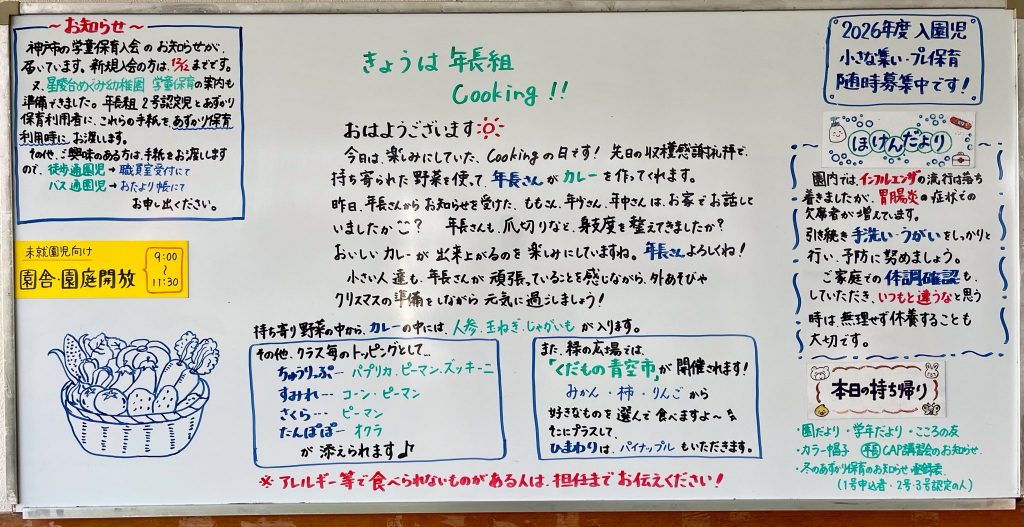 ～お知らせ～
神戸市の学童保育入会のお知らせが、
届いています。新規入会の方は、12/12までです。
又、星陵台めぐみ幼稚園 学童保育の案内も
準備できました。年長組 2号認定児とあずかり
保育利用者に、これらの手紙を、あずかり保育
利用時にお渡します。
その他、ご興味のある方は、手紙をお渡しします
ので、徒歩通園児→職員室受付にて
バス通園児→おたより帳にて
お申し出ください。
未就園児向け
園舎・園庭開放
9:00
～
11:30
きょうは 年長組
Cooking!!
おはようございます
今日は、楽しみにしていた、Cookingの日です! 先日の収穫感謝礼拝で、
持ち寄られた野菜を使って、年長さんがカレーを作ってくれます。
昨日、年長さんからお知らせを受けた、ももさん、年少さん、年中さんは、お家でお話して
いましたか? 年長さんも、爪切りなど、身支度を整えてきましたか?
おいしいカレーが出来上がるのを楽しみにしていますね。年長さんよろしくね!
小さい人達も、年長さんが頑張っていることを感じながら、外あそびや
クリスマスの準備をしながら元気に過ごしましょう!
持ち寄り野菜の中から、カレーの中には、人参、玉ねぎ、じゃがいもが入ります。
その他、クラス毎のトッピングとして…
ちゅうりっぷ… パプリカ、ピーマン、ズッキーニ
すみれ… コーン・ピーマン
さくら… ピーマン
たんぽぽ… オクラ
が添えられます♪
また、緑の広場では、
「くだもの青空市」が開催されます!
みかん・柿・りんごから
好きなものを選んで食べますよ～
そこにプラスして、
ひまわりは、パイナップルもいただきます。
※アレルギー等で食べられないものがある人は、担任までお伝えください!
2026年度 入園児
小さな集い・プレ保育
随時募集中です!
ほけんだより
園内では、インフルエンザの流行は落ち
着きましたが、胃腸炎の症状での
欠席者が増えています。
引き続き手洗い・うがいをしっかりと
行い、予防に努めましょう。
ご家庭での体調確認も、
していただき、いつもと違うなと思う
時は、無理せず休養することも
大切です。
本日の持ち帰り
・園だより・学年だより・こころの友
・カラー帽子 CAP講習会のお知らせ
・冬のあずかり保育のお知らせ
(1号申込者・2号・3号認定の人)